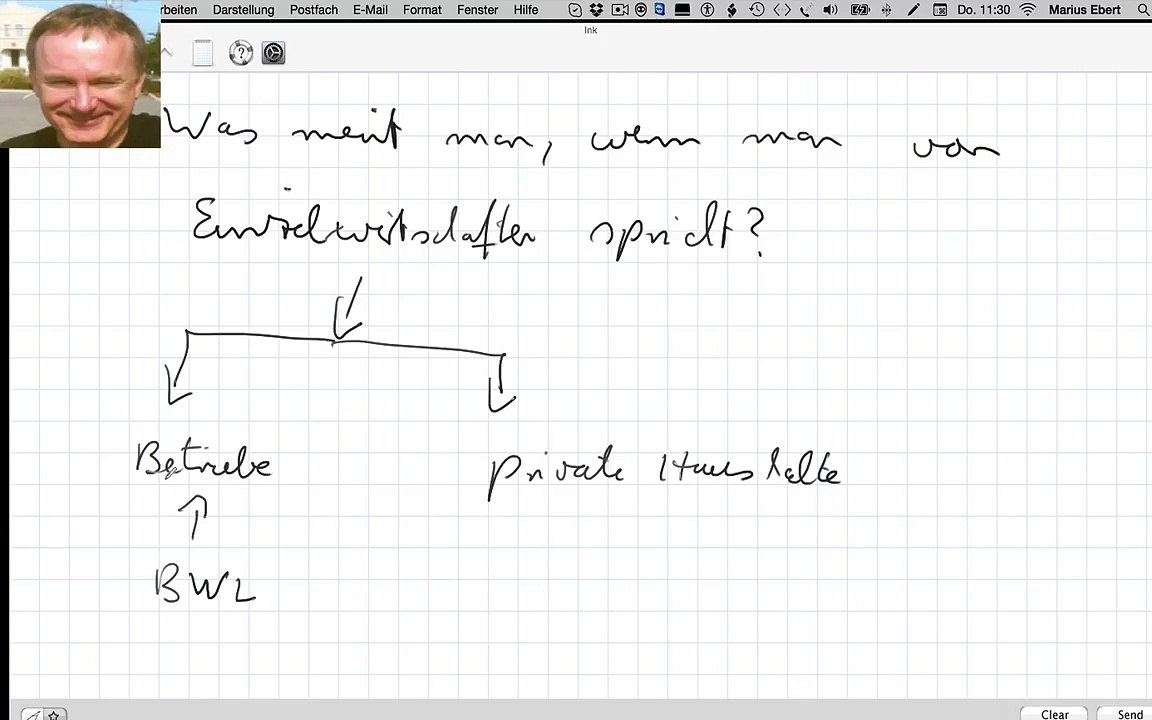 rbeiten Darstellung Postfach E-Mail Format Fenster Hilfe Do. 11:30 Marius Ebert
Ink
Was meint man, wenn man von
Einzelwirtschaften spricht?
Betriebe private Haushalte
BWL
Clear Send